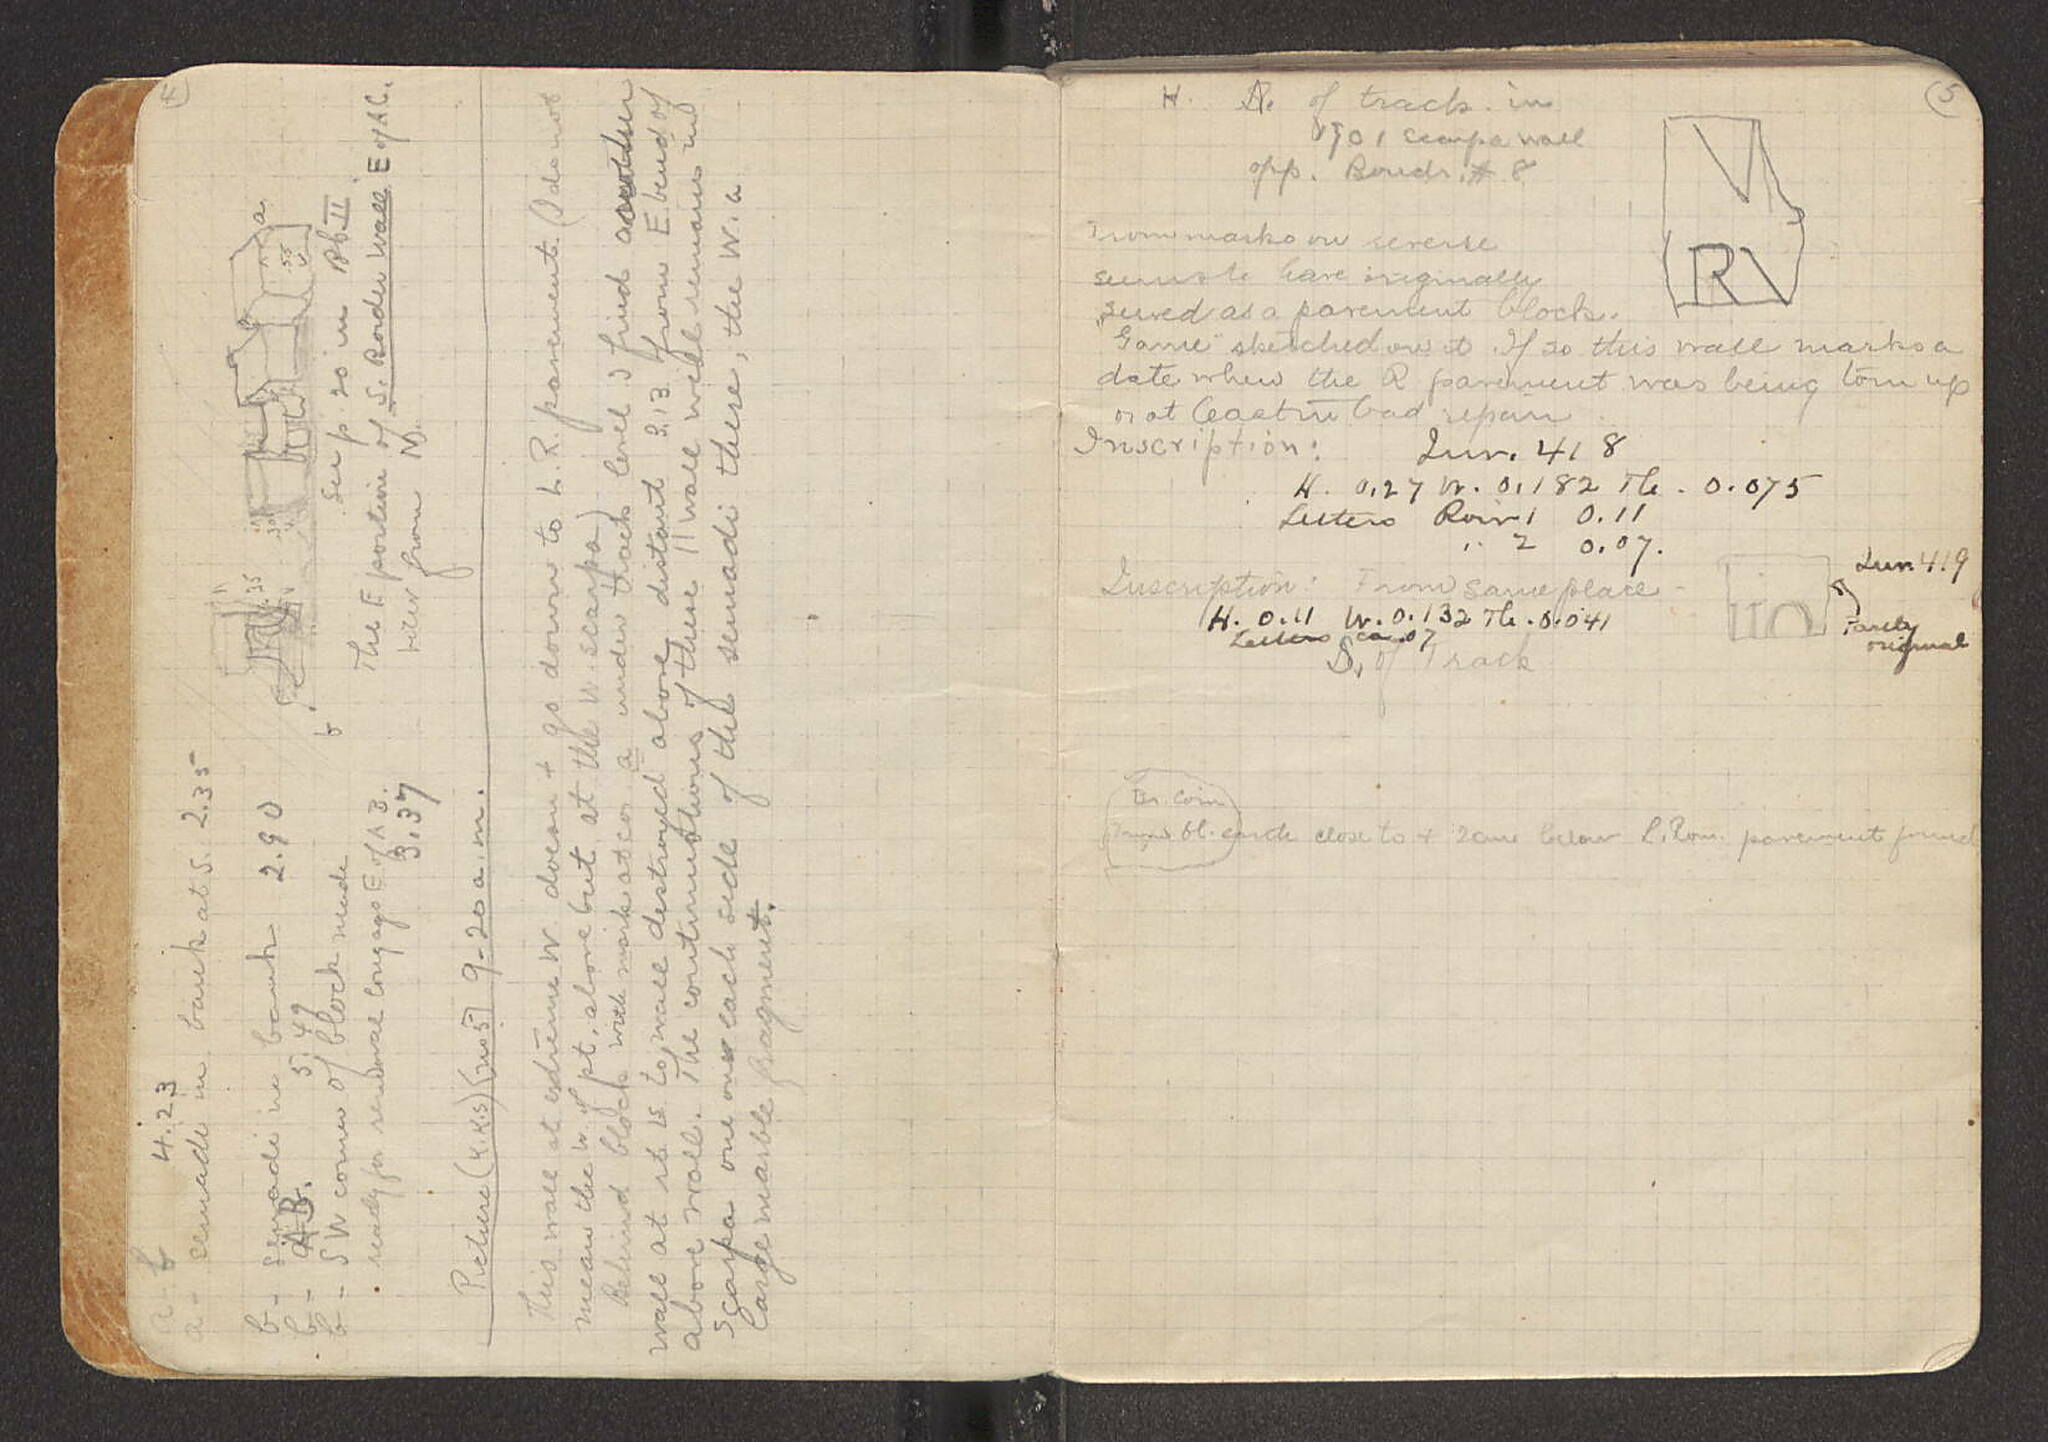 (4)
a - b 4.23
a - semadi in bank at S. 2.35
b - semadi in bank 2.90
b - AB. 5.49
b - SW corner of block made
ready for removal long ago E of AB.
3.37
a
a
.35
.55
b
See p. 20 in Bk II
The E portion of S. Border Wall E of AB.
from N.
Picture (K.K.S) (no 5) 9-20 a.m.
This wall at extreme W doesn't go down to L.R. pavement. (I do not
mean the W. of pt. above but at the W. scarpa)
Behind block with mark at cor a under track level I find another
wall at rt is to wall destroyed above distant 3.13 from E bend of
above wall. The continuations of these || wall will remains in
scarpa one on each side of the semadi there, the W. a
large marble fragment.
(5)
H. N. of track in
1901 scarpa wall
opp. Boudr. # 8
V
R
From marks on reverse
seems to have originally
served as a pavement block.
"Game" sketched on it. If so this wall marks a
date when the R pavement was being torn up
or at least in bad repair.
Inscription: Inv. 418
H. 0.27 W. 0.182 Th. 0.075
Letters Row 1 0.11
" 2 0.07.
Inscription: From same place -
Inv. 419
H. 0.11 W. 0.132 Th. 0.041
Letters ca .07
Partly
original
S. of Track
Br. coin
From bl. earth close to + 2cm below L. Rom. pavement found